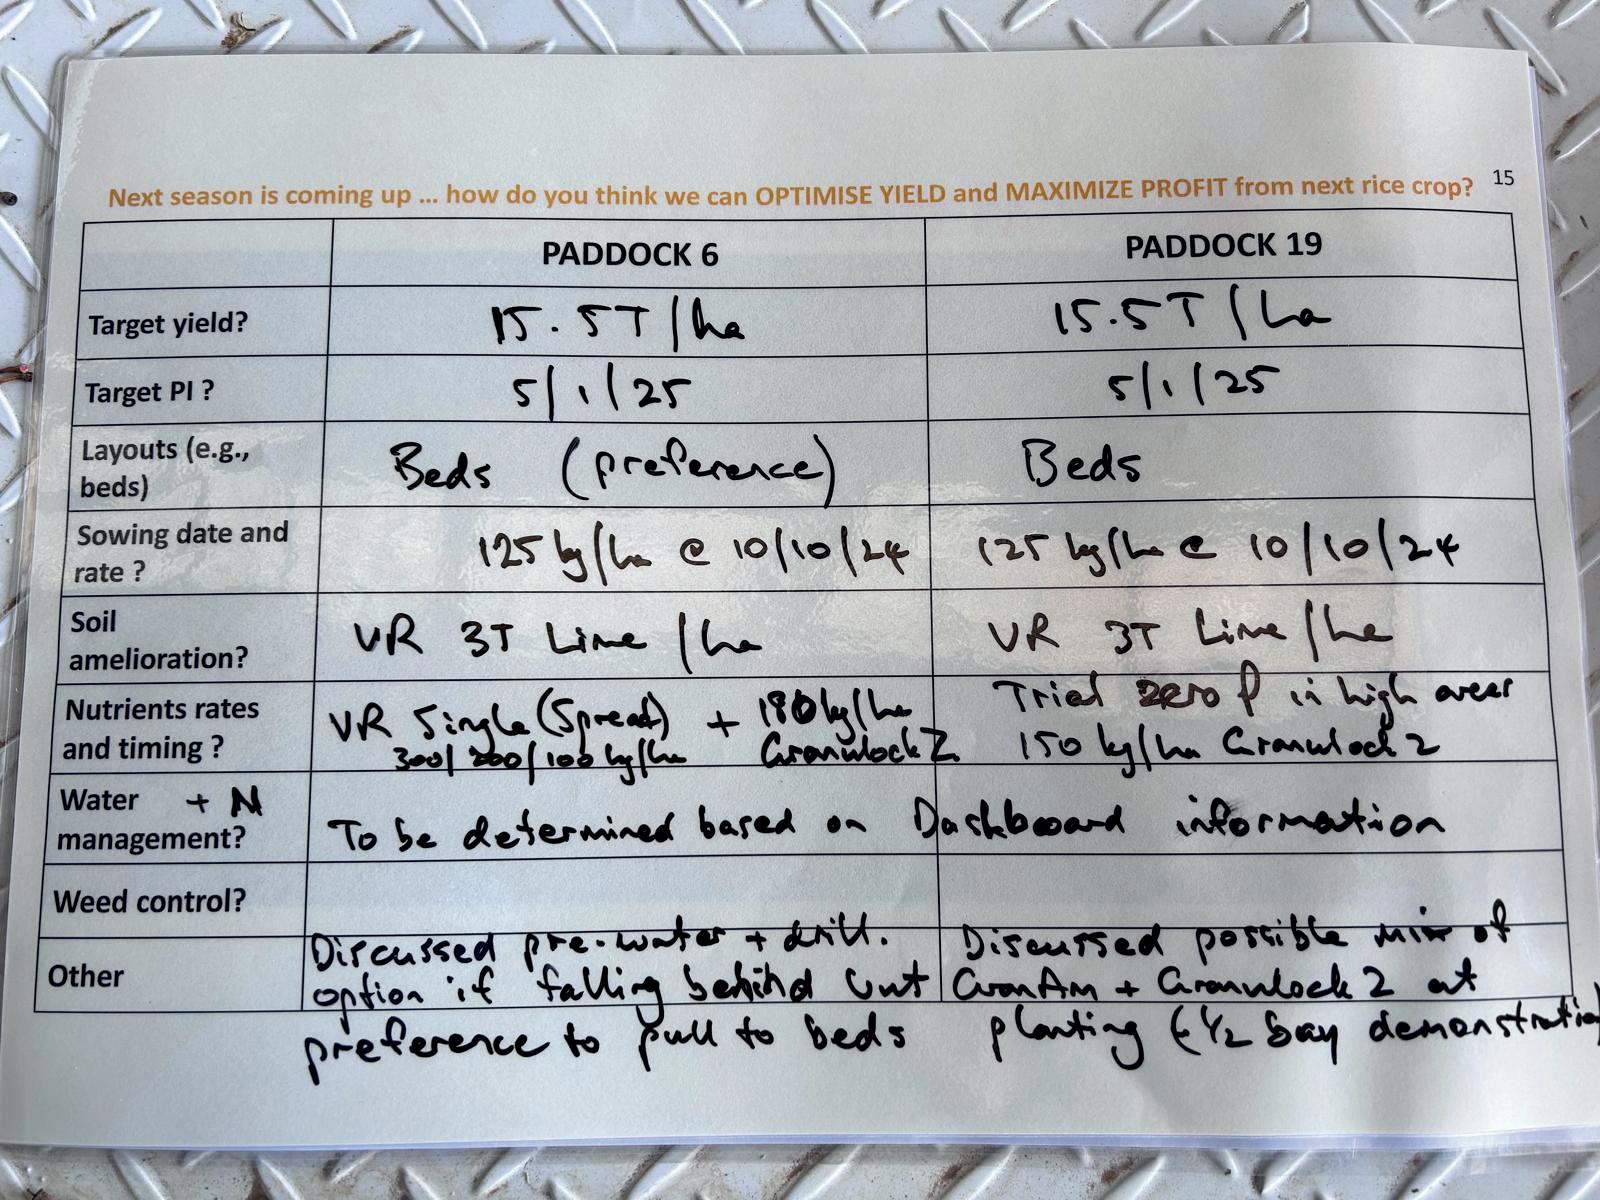 15
Next season is coming up ... how do you think we can OPTIMISE YIELD and MAXIMIZE PROFIT from next rice crop?
PADDOCK 6 PADDOCK 19
Target yield? 15.5T/ha 15.5T/ha
Target PI ? 5/1/25 5/1/25
Layouts (e.g., beds) Beds (preference) Beds
Sowing date and rate ? 125 kg/ha @ 10/10/24 125 kg/ha @ 10/10/24
Soil amelioration? VR 3T Lime/ha VR 3T Lime/ha
Nutrients rates and timing ? VR Single (Spread) + 180kg/ha Trial zero P in high areas
300/200/100 kg/ha Granulock Z 150 kg/ha Granulock Z
Water + N management? To be determined based on Dashboard information
Weed control?
Other Discussed pre-water + drill. Discussed possible mix of
option if falling behind but GranAm + Granulock Z at
preference to pull to beds planting 1/2 bay demonstration